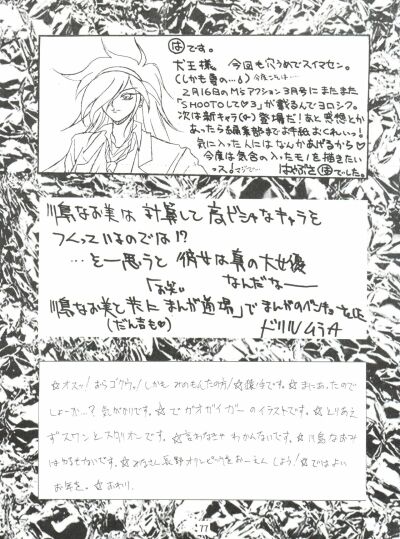 はです。
犬王様。今回も穴うめでスイマセン。
(しかも骨の…。)
2月16日のM'sアクション3月号にまたまた
「SHOOTOして♡3」が載るんでヨロシク。
次は新キャラ(♀)登場だ!あと感想とか
あったら編集部までお手紙おくれいっ!
気に入った人にはなんかあげるから♡
今度は気合の入ったモノを描きたい
っス!マジで… はやぶさはでした。
川島なお美は計算して高ビシャなキャラを
つくっているのでは!?
…と一思うと彼女は真の大女優
なんだなー
「お笑い
川島なお美と共にまんが道場」でまんがのベンキョーを
(だん吉も♡)
ドリルムラタ
☆オスッ!おらゴクウ。!しかもみのもんたの方!☆
まにあったので
しょーか…?気がかりです。☆でガオガイガーのイラストです。☆とりあえ
ずスワンとスタリオンです。☆言わなきゃわかんないです。☆川島なおみ
はゆるせないです。☆みなさん長野オリンピックをおーえんしよう!☆ではよい
お年を。☆おわり.
77